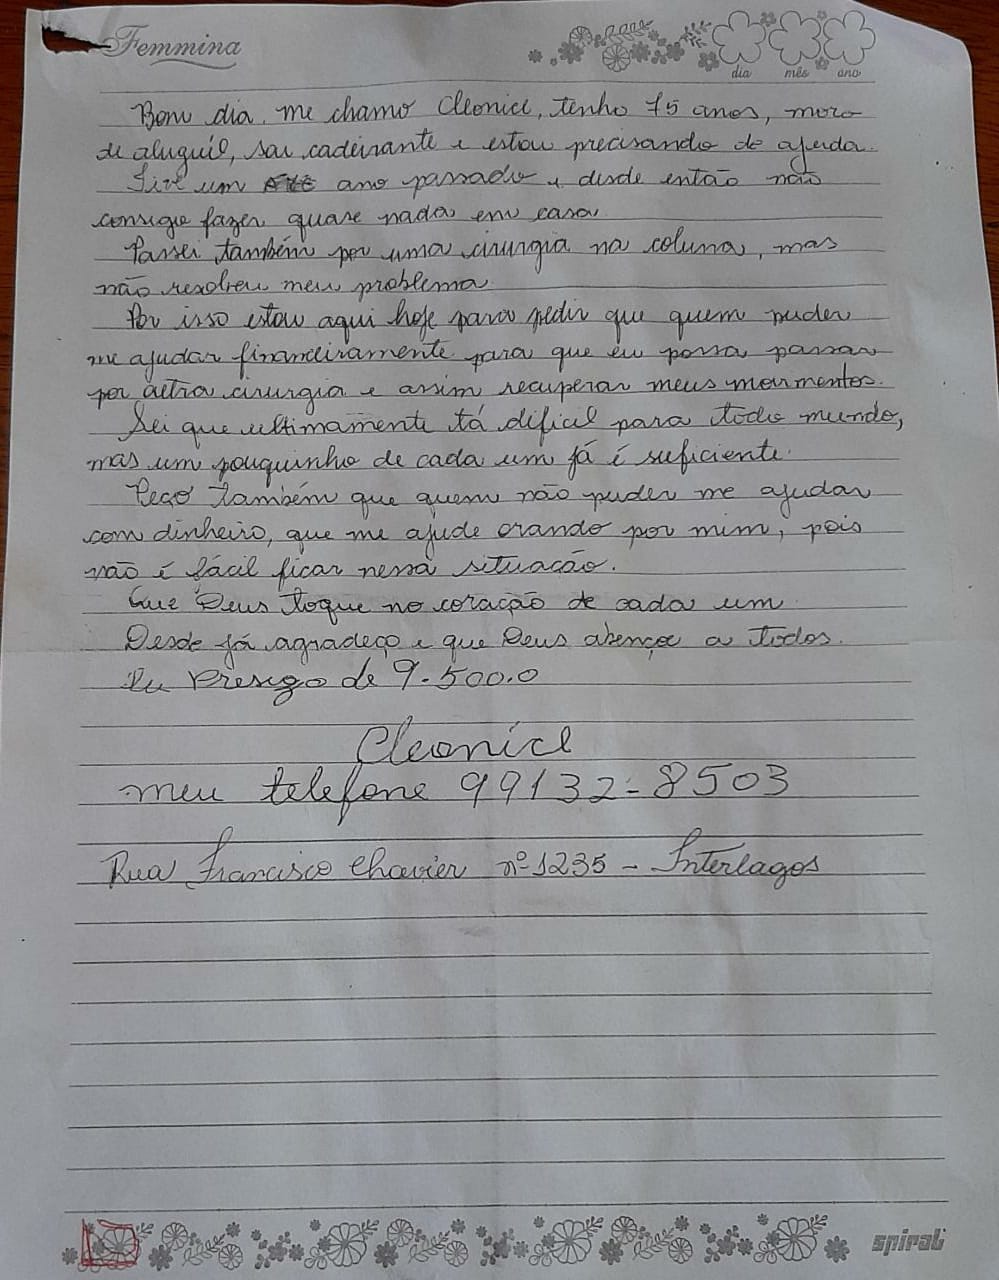 Femmina
dia mês ano
Bom dia, me chamo Cleonice, tenho 75 anos, moro
de aluguel, sou cadeirante e estou precisando de ajuda.
Tive um ano passado e desde então não
consigo fazer quase nada em casa.
Passei também por uma cirurgia na coluna, mas
não resolveu meu problema.
Por isso estou aqui hoje para pedir que quem puder
me ajudar financeiramente para que eu possa passar
por outra cirurgia e assim recuperar meus movimentos.
Sei que ultimamente tá dificil para todo mundo,
mas um pouquinho de cada um já é suficiente.
Peço também que quem não puder me ajudar
com dinheiro, que me ajude orando por mim, pois
não é fácil ficar nessa situação.
Que Deus toque no coração de cada um
Desde já agradeço e que Deus abençoe a todos.
Eu Presigo de 9.500.0
Cleonice
meu telefone 99132-8503
Rua Francisco Chavier nº 1235 - Interlagos
spiral